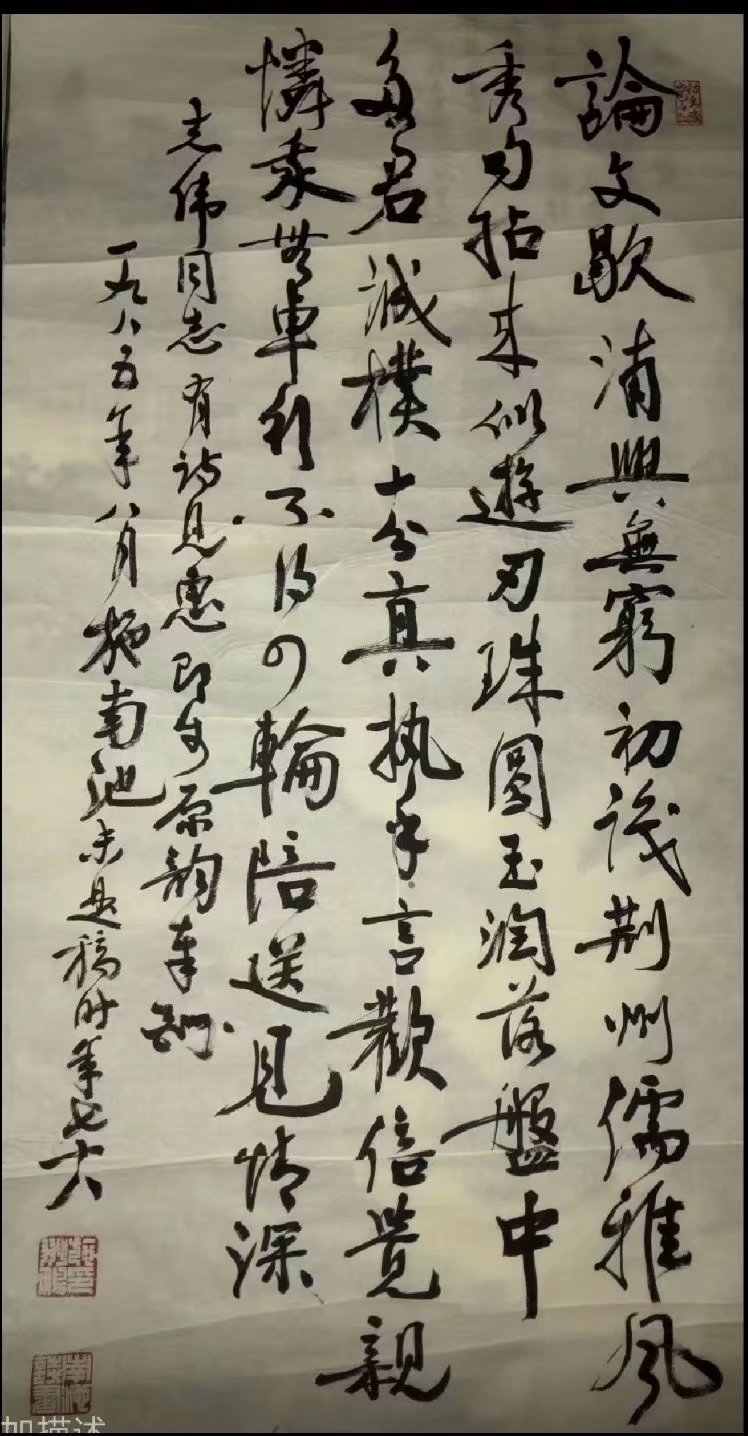 論文歇浦興無窮初識荆州儒雅風
秀句拈来似遊刃珠圓玉潤落盤中
多君誠樸十分真执手言歡倍觉親
憐我無車行不得の輪陪送見情深
志偉同志有诗見惠即步原韵奉酬
一九八五年八月施南池未是稿时年七十八
加描述